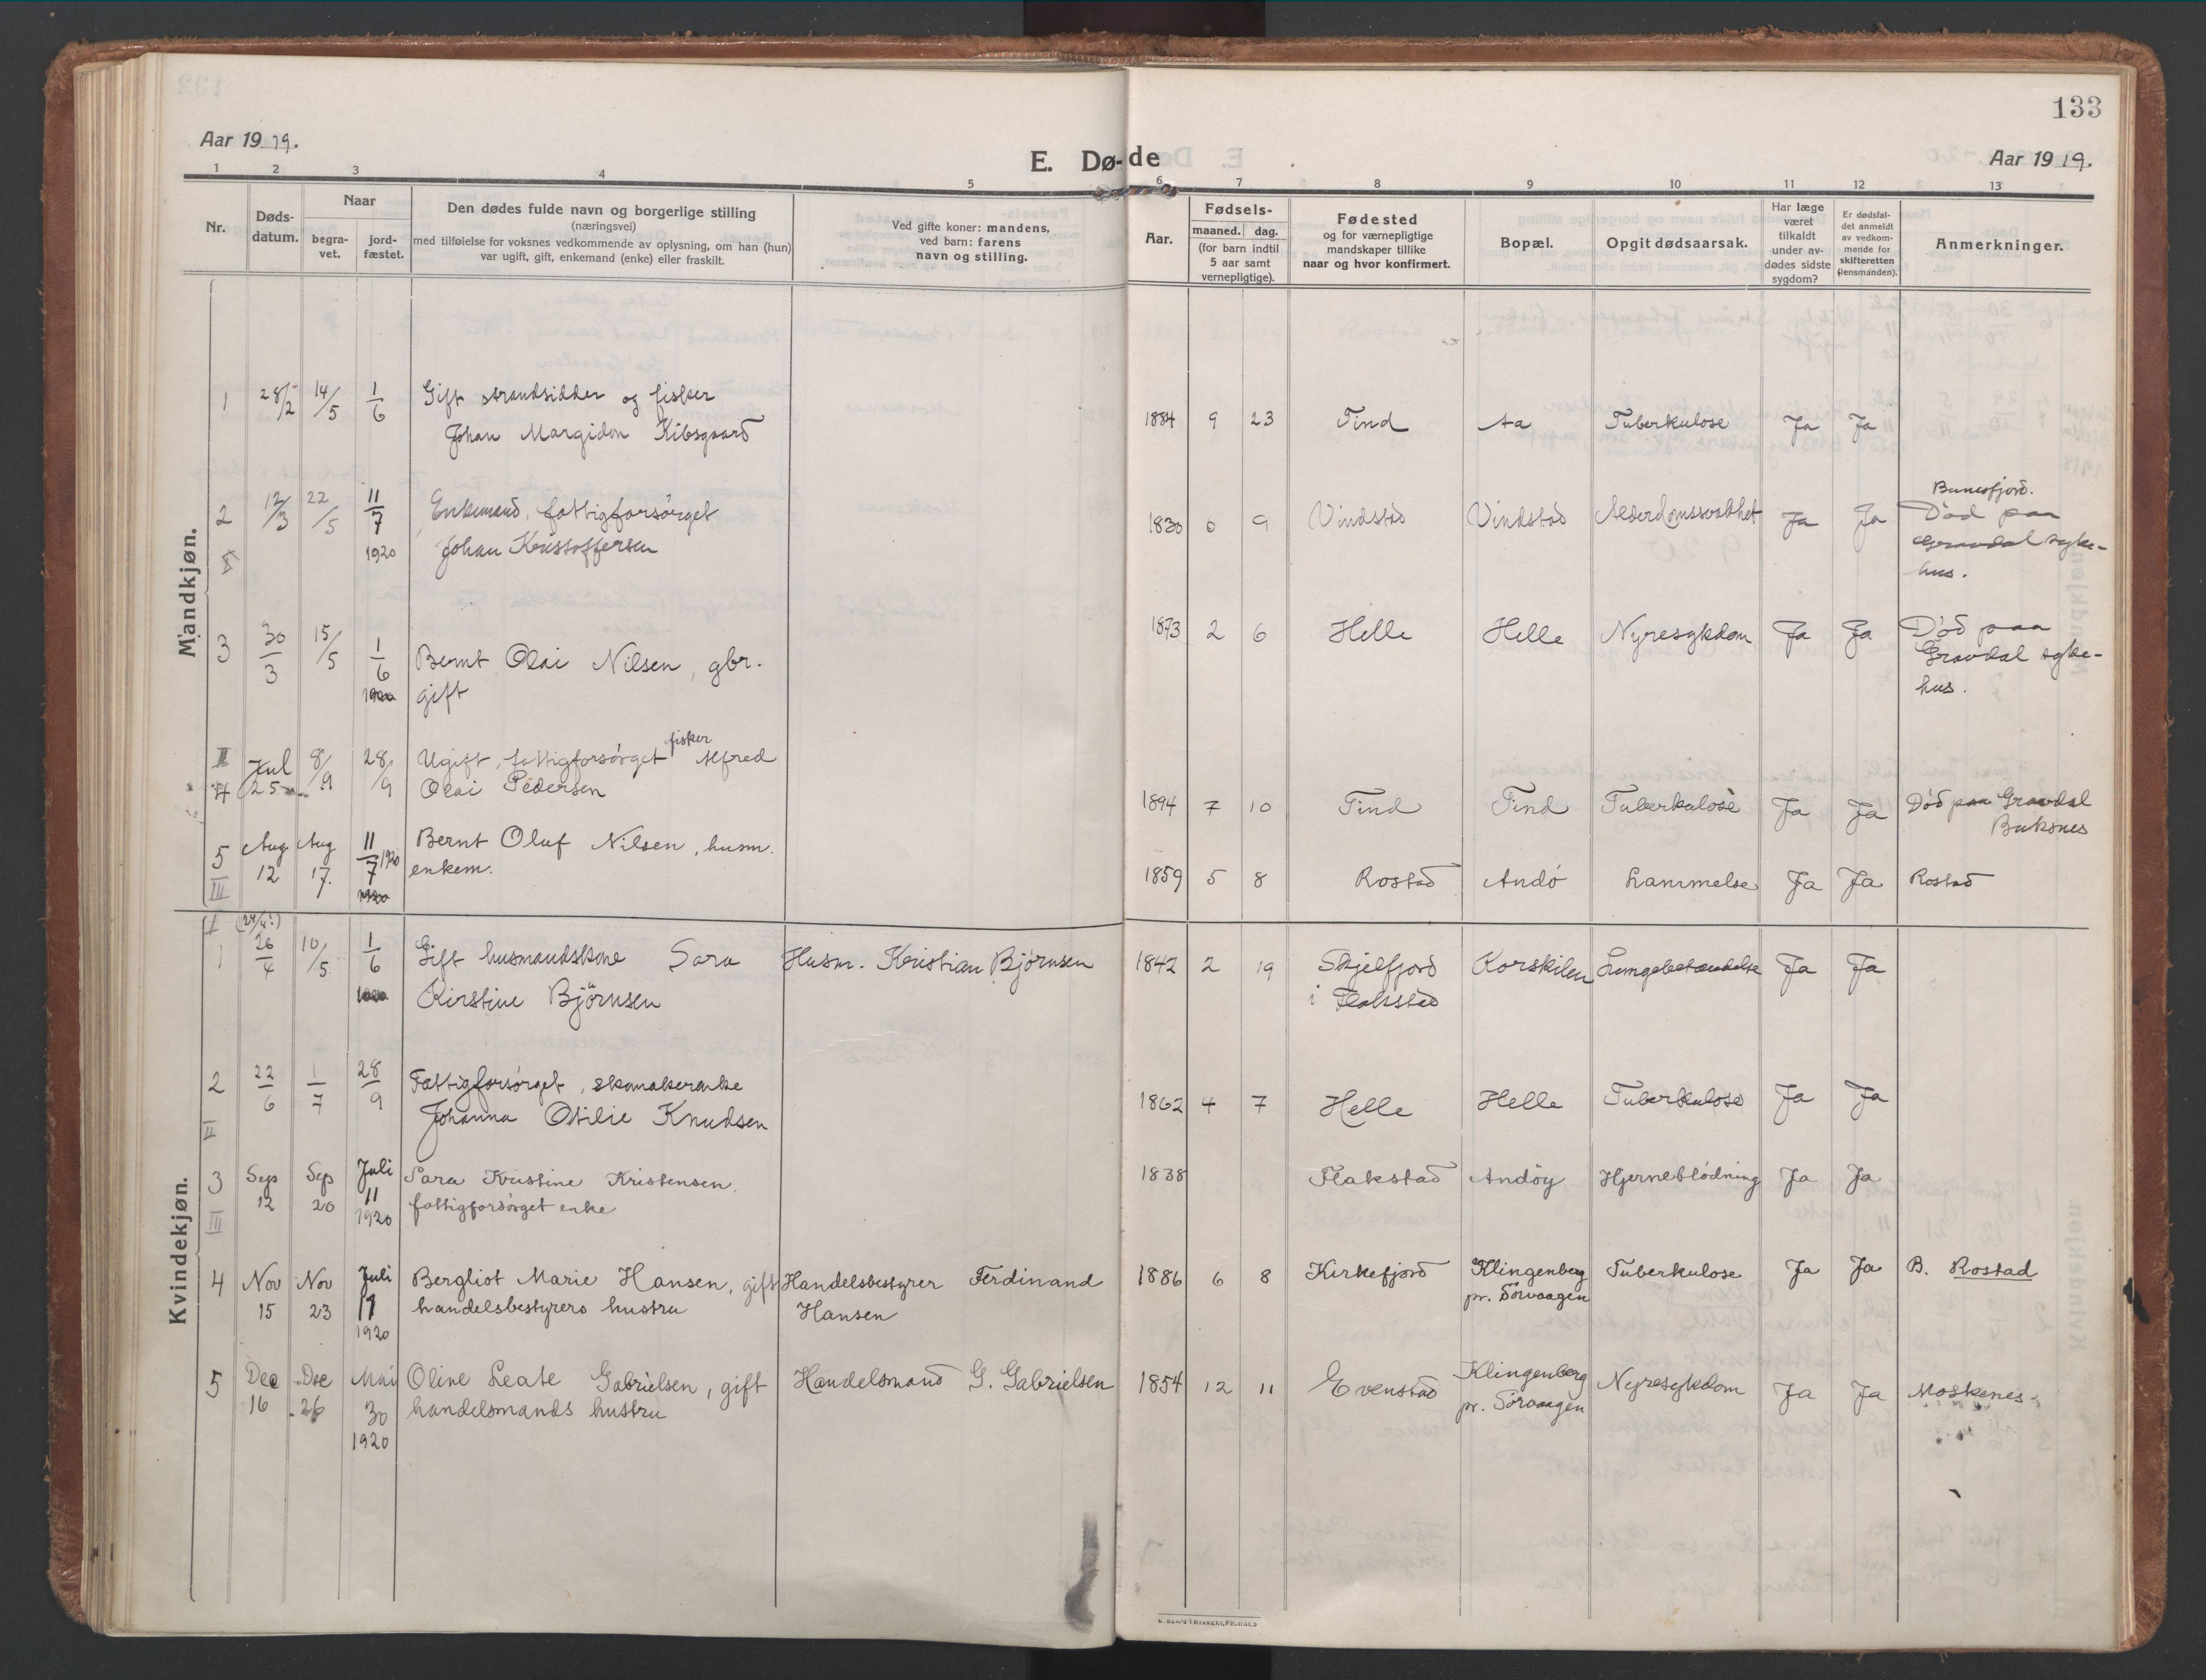 133
Aar 1919.
E. Dø-de
Aar 1919.
1 2 3 4 5 6 7 8 9 10 11 12 13
Nr.
Døds-
datum.
Naar
begra-
vet.
jord-
fæstet.
Den dødes fulde navn og borgerlige stilling
(næringsvei)
med tilføielse for voksnes vedkommende av oplysning, om han (hun)
var ugift, gift, enkemand (enke) eller fraskilt.
Ved gifte koner: mandens,
ved barn: farens
navn og stilling.
Aar.
Fødsels-
maaned. dag.
(for barn indtil
5 aar samt
vernepligtige).
Fødested
og for værnepligtige
mandskaper tillike
naar og hvor konfirmert.
Bopæl.
Opgit dødsaarsak.
Har læge
været
tilkaldt
under av-
dødes sidste
sygdom?
Er dødsfal-
det anmeldt
av vedkom-
mende for
skifteretten
(lensmanden).
Anmerkninger.
Mandkjøn.
1 28/2 14/5 1/6 Gift strandsidder og fisker
Johan Margidon Kibsgaard
1884 9 23 Tind Aa Tuberkulose Ja Ja
2 12/3 22/5 11/7 1920 Enkemand, fattigforsørget
Johan Kristoffersen
1830 6 9 Vindstad Vindstad Alderdomssvakhet Ja Ja
Bunesfjord.
Død paa
Gravdal syke-
hus.
3 30/3 15/5 1/6 1920 Bernt Olai Nilsen, gbr.
gift
1873 2 6 Helle Helle Nyresykdom Ja Ja
Død paa
Gravdal syke-
hus.
II
4 Jul 25 8/9 28/9 Ugift, fattigforsørget fisker Alfred
Olai Pedersen
1894 7 10 Tind Tind Tuberkulose Ja Ja
Død paa Gravdal
Buksnes
5 Aug 12 Aug 17. 11/7 1920 Bernt Oluf Nilsen, husm.
enkem.
III
1859 5 8 Rostad Andø Lammelse Ja Ja Rostad
Kvindekjøn.
I
1 (24/4?) 26/4 10/5 1/6 1920 Gift husmandskone Sara
Kirstine Bjørnsen
Husm. Kristian Bjørnsen
1842 2 19 Skjelfjord
i Flakstad
Korskilen Lungebetændelse Ja Ja
2 22/6 1/7 28/9 Fattigforsørget, skomakerenke
Johanna Otilie Knudsen
II
1862 4 7 Helle Helle Tuberkulose Ja Ja
3 Sep 12 Sep 20 Juli 11 1920 Sara Kristine Kristensen.
fattigforsørget enke
III
1838 Flakstad Andøy Hjerneblødning Ja Ja
4 Nov 15 Nov 23 Juli 11 1920 Bergliot Marie Hansen, gift
handelsbestyrers hustru
Handelsbestyrer Ferdinand
Hansen
1886 6 8 Kirkefjord Klingenberg
pr. Sørvaagen
Tuberkulose Ja Ja B. Rostad
5 Dec 16 Dec 26 Mai 30 1920 Oline Leate Gabrielsen, gift
handelsmands hustru
Handelsmand G. Gabrielsen
1854 12 11 Evenstad Klingenberg
pr. Sørvaagen
Nyresykdom Ja Ja Moskenes